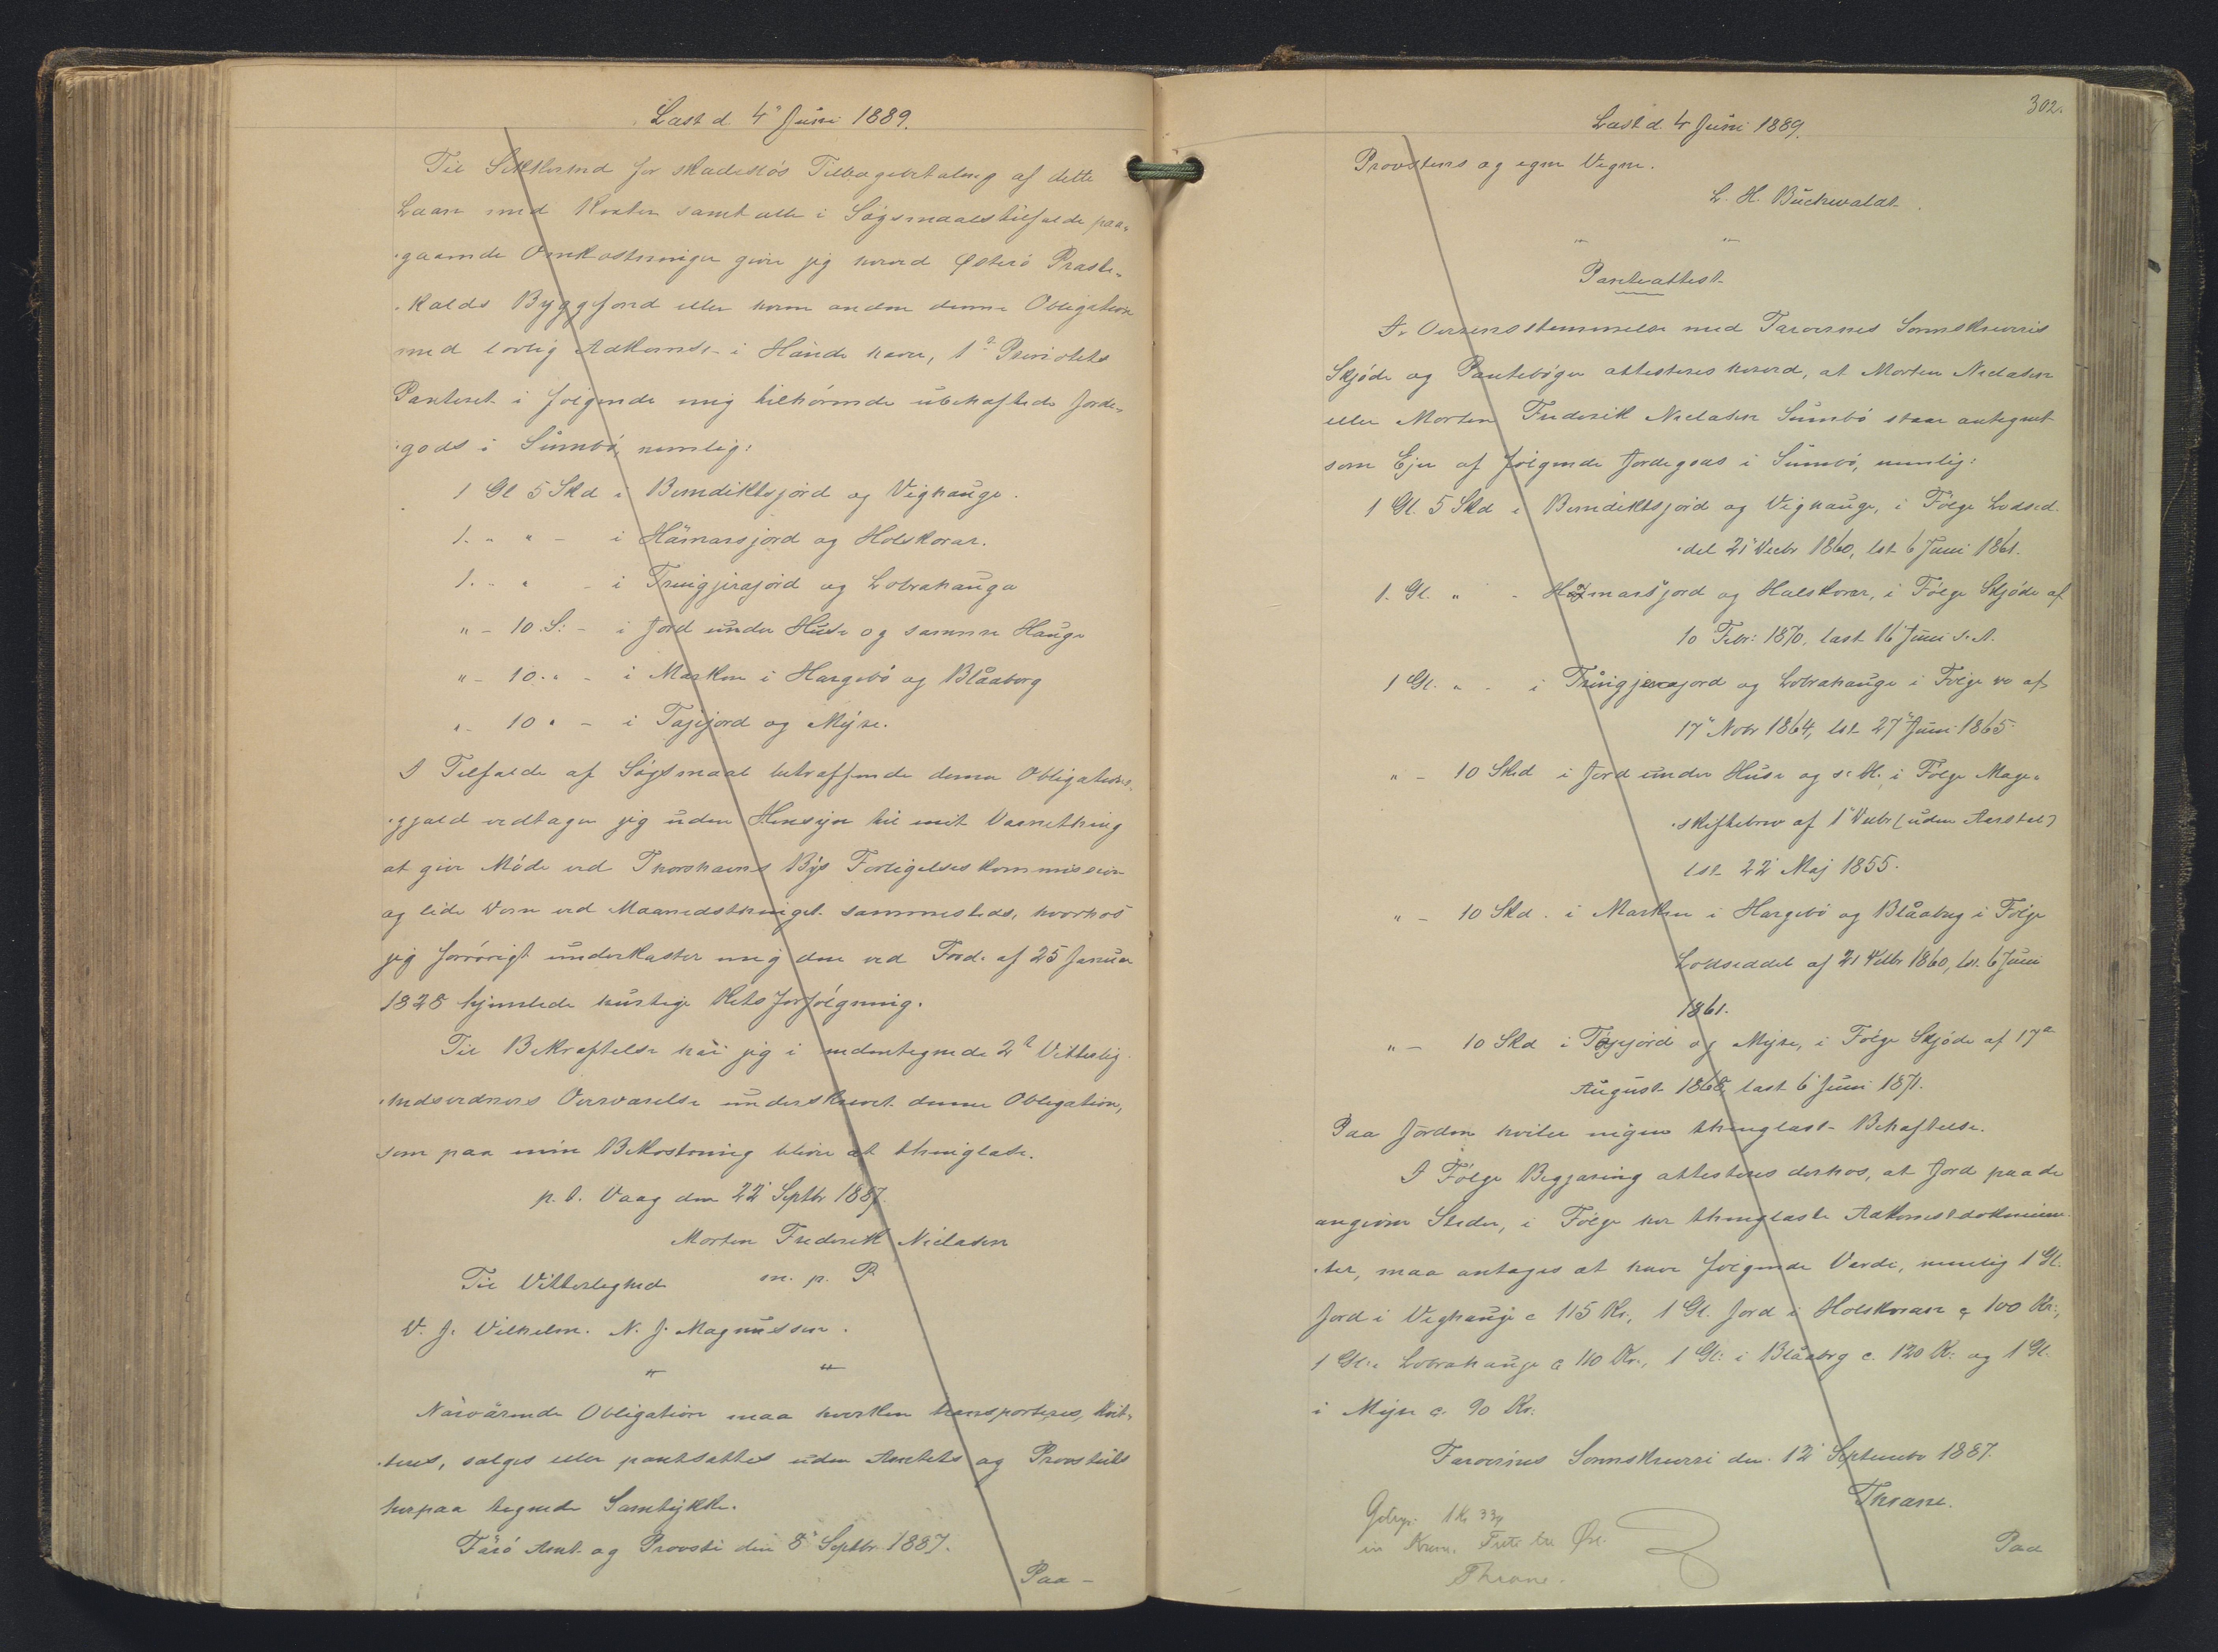 Læst d. 4' Juni 1889.
Til Sikkerhed for skadesløs Tilbagebetaling af dette
Laan med Renter samt alle i Søgsmaalstilfælde paa-
gaaende Omkostninger giver jeg herved Østerø Præste-
kalds Byggefond eller hvem anden denne Obligation
med lovlig Adkomst i Hænde haver, 1' Prioritets
Panteret i følgende mig tilhørende ubehæftede Jorde-
gods i Sumbø, nemlig:
1 Gl 5 Skd i Benediktsjord og Vighauge.
1. " " - i Hämarsjord og Holskorar.
1. " " - i Tringjirajord og Lobrahauga
" - 10 S: - i Jord under Huse og samme Hauge
" - 10. " - i Marken i Hargebø og Blåaberg
" - 10 " - i Tajejord og Mýre.
I Tilfælde af Søgsmaal betræffende denne Obligations-
gjæld vedtager jeg uden Hensyn til mit Værnething
at give Møde ved Thorshavns Bys Forligelseskommission
og lide Dom ved Maanedsthinget sammesteds, hvorhos
jeg forøvrigt underkaster mig den ved Frd. af 25 Januar
1828 hjemlede hurtige Retsforfølgning.
Til Bekræftelse har jeg i undertegnede 2de Vitterlig-
hedsvidners Overværelse underskrevet denne Obligation,
som paa min Bekostning bliver at thinglæse.
p. t. Vaag den 22' Septbr 1887.
Morten Frederik Nielasen
Til Vitterlighed m. p. P.
V. J. Vilhelm. N. J. Magnussen.
" "
Nærværende Obligation maa hverken transporteres, kvit-
teres, sælges eller pantsættes uden Amtets og Provstiets
herpaa tegnede Samtykke.
Færø Amt og Provsti den 8' Septbr 1887.
Paa -
302.
Læst d. 4 Juni 1889.
Provstens og egne Vegne.
L. H. Buchwaldt.
" "
Panteattest
I Overensstemmelse med Færøernes Sorenskriveris
Skjøde og Pantebøger attesteres herved, at Morten Nielasen
eller Morten Frederik Nielasen Sumbø staar antegnet
som Ejer af følgende Jordegods i Sumbø, nemlig:
1 Gl. 5 Skd i Benediktsjord og Vighauge, i Følge Lodsed-
del 21' Decbr 1860, læst 6 Juni 1861.
1. Gl. " - Hamarsjord og Halskorar, i Følge Skjøde af
10 Febr: 1870, læst 16 Juni s. A.
1 Gl. " - i Tringjerajord og Lobrahauge i Følge do af
17" Nobr 1864, lst 27" Juni 1865
" - 10 Skd i Jord under Huse og s. H. i Følge Mage-
skiftebrev af 1' Decbr (uden Aarstal)
lst 22' Maj 1855.
" - 10 Skd. i Marken i Hargebø og Blåaberg i Følge
Lodseddel af 21 Decbr 1860, lst. 6 Juni
1861.
" - 10 Skd i Tøjejord og Mýre, i Følge Skjøde af 17de
August 1868, læst 6' Juni 1871.
Paa Jorden hviler ingen thinglæst Behæftelse.
I Følge Begjæring attesteres derhos, at Jord paa de
angivne Steder, i Følge her thinglæste Adkomstdokumen-
ter, maa antages at have følgende Værdi, nemlig 1 Gl.
Jord i Vighauge c 115 Kr., 1 Gl. Jord i Holskorar c 100 Kr.,
1 Gl. i Lobrahauge c 110 Kr., 1 Gl: i Blåaberg c. 120 Kr: og 1 Gl.
i Mýre c. 90 Kr:
Færøernes Sorenskriveri den 12' September 1887.
Thrane.
Gebyr: 1 Kr 33
en Krone Treti tre Øre.
Thrane.
Paa